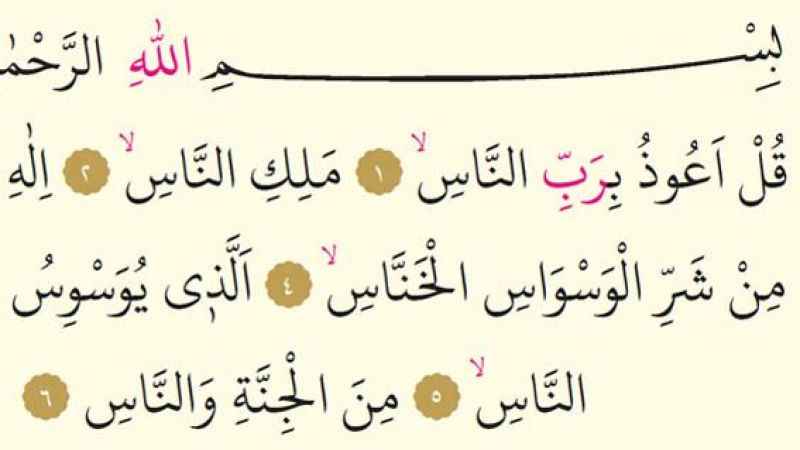 بِسْمِ اللّٰهِ الرَّحْمٰ
قُلْ اَعُوذُ بِرَبِّ النَّاسِۙ ١ مَلِكِ النَّاسِۙ ٢ اِلٰهِ
مِنْ شَرِّ الْوَسْوَاسِ الْخَنَّاسِۙ ٤ اَلَّذٖى يُوَسْوِسُ
النَّاسِۙ ٥ مِنَ الْجِنَّةِ وَالنَّاسِ ٦